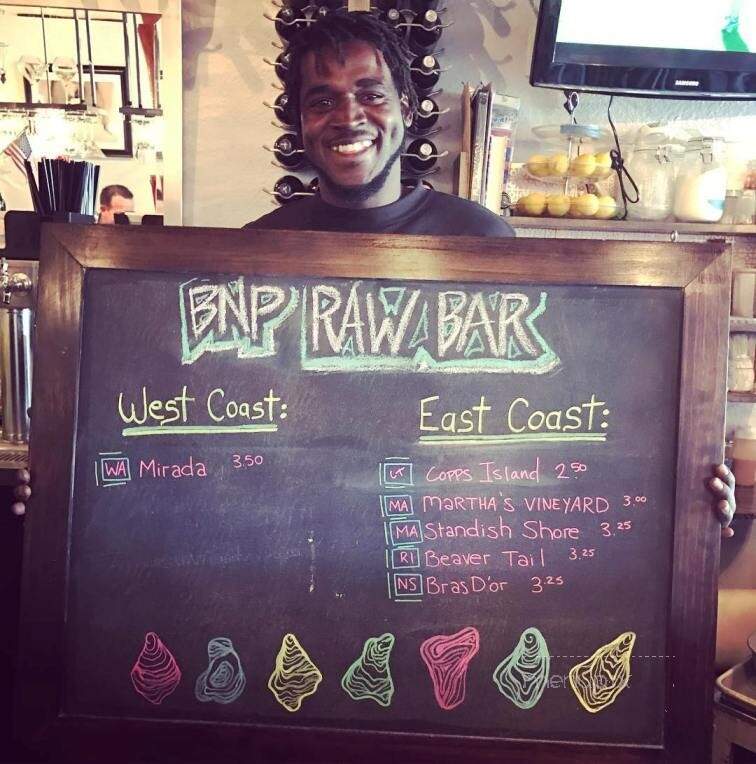 SAMSUNG
BNP RAW BAR
West Coast:
WA Mirada 3.50
East Coast:
CT Copps Island 2.50
MA MARTHA'S VINEYARD 3.00
MA Standish Shore 3.25
RI Beaver Tail 3.25
NS BrasD'or 3.25